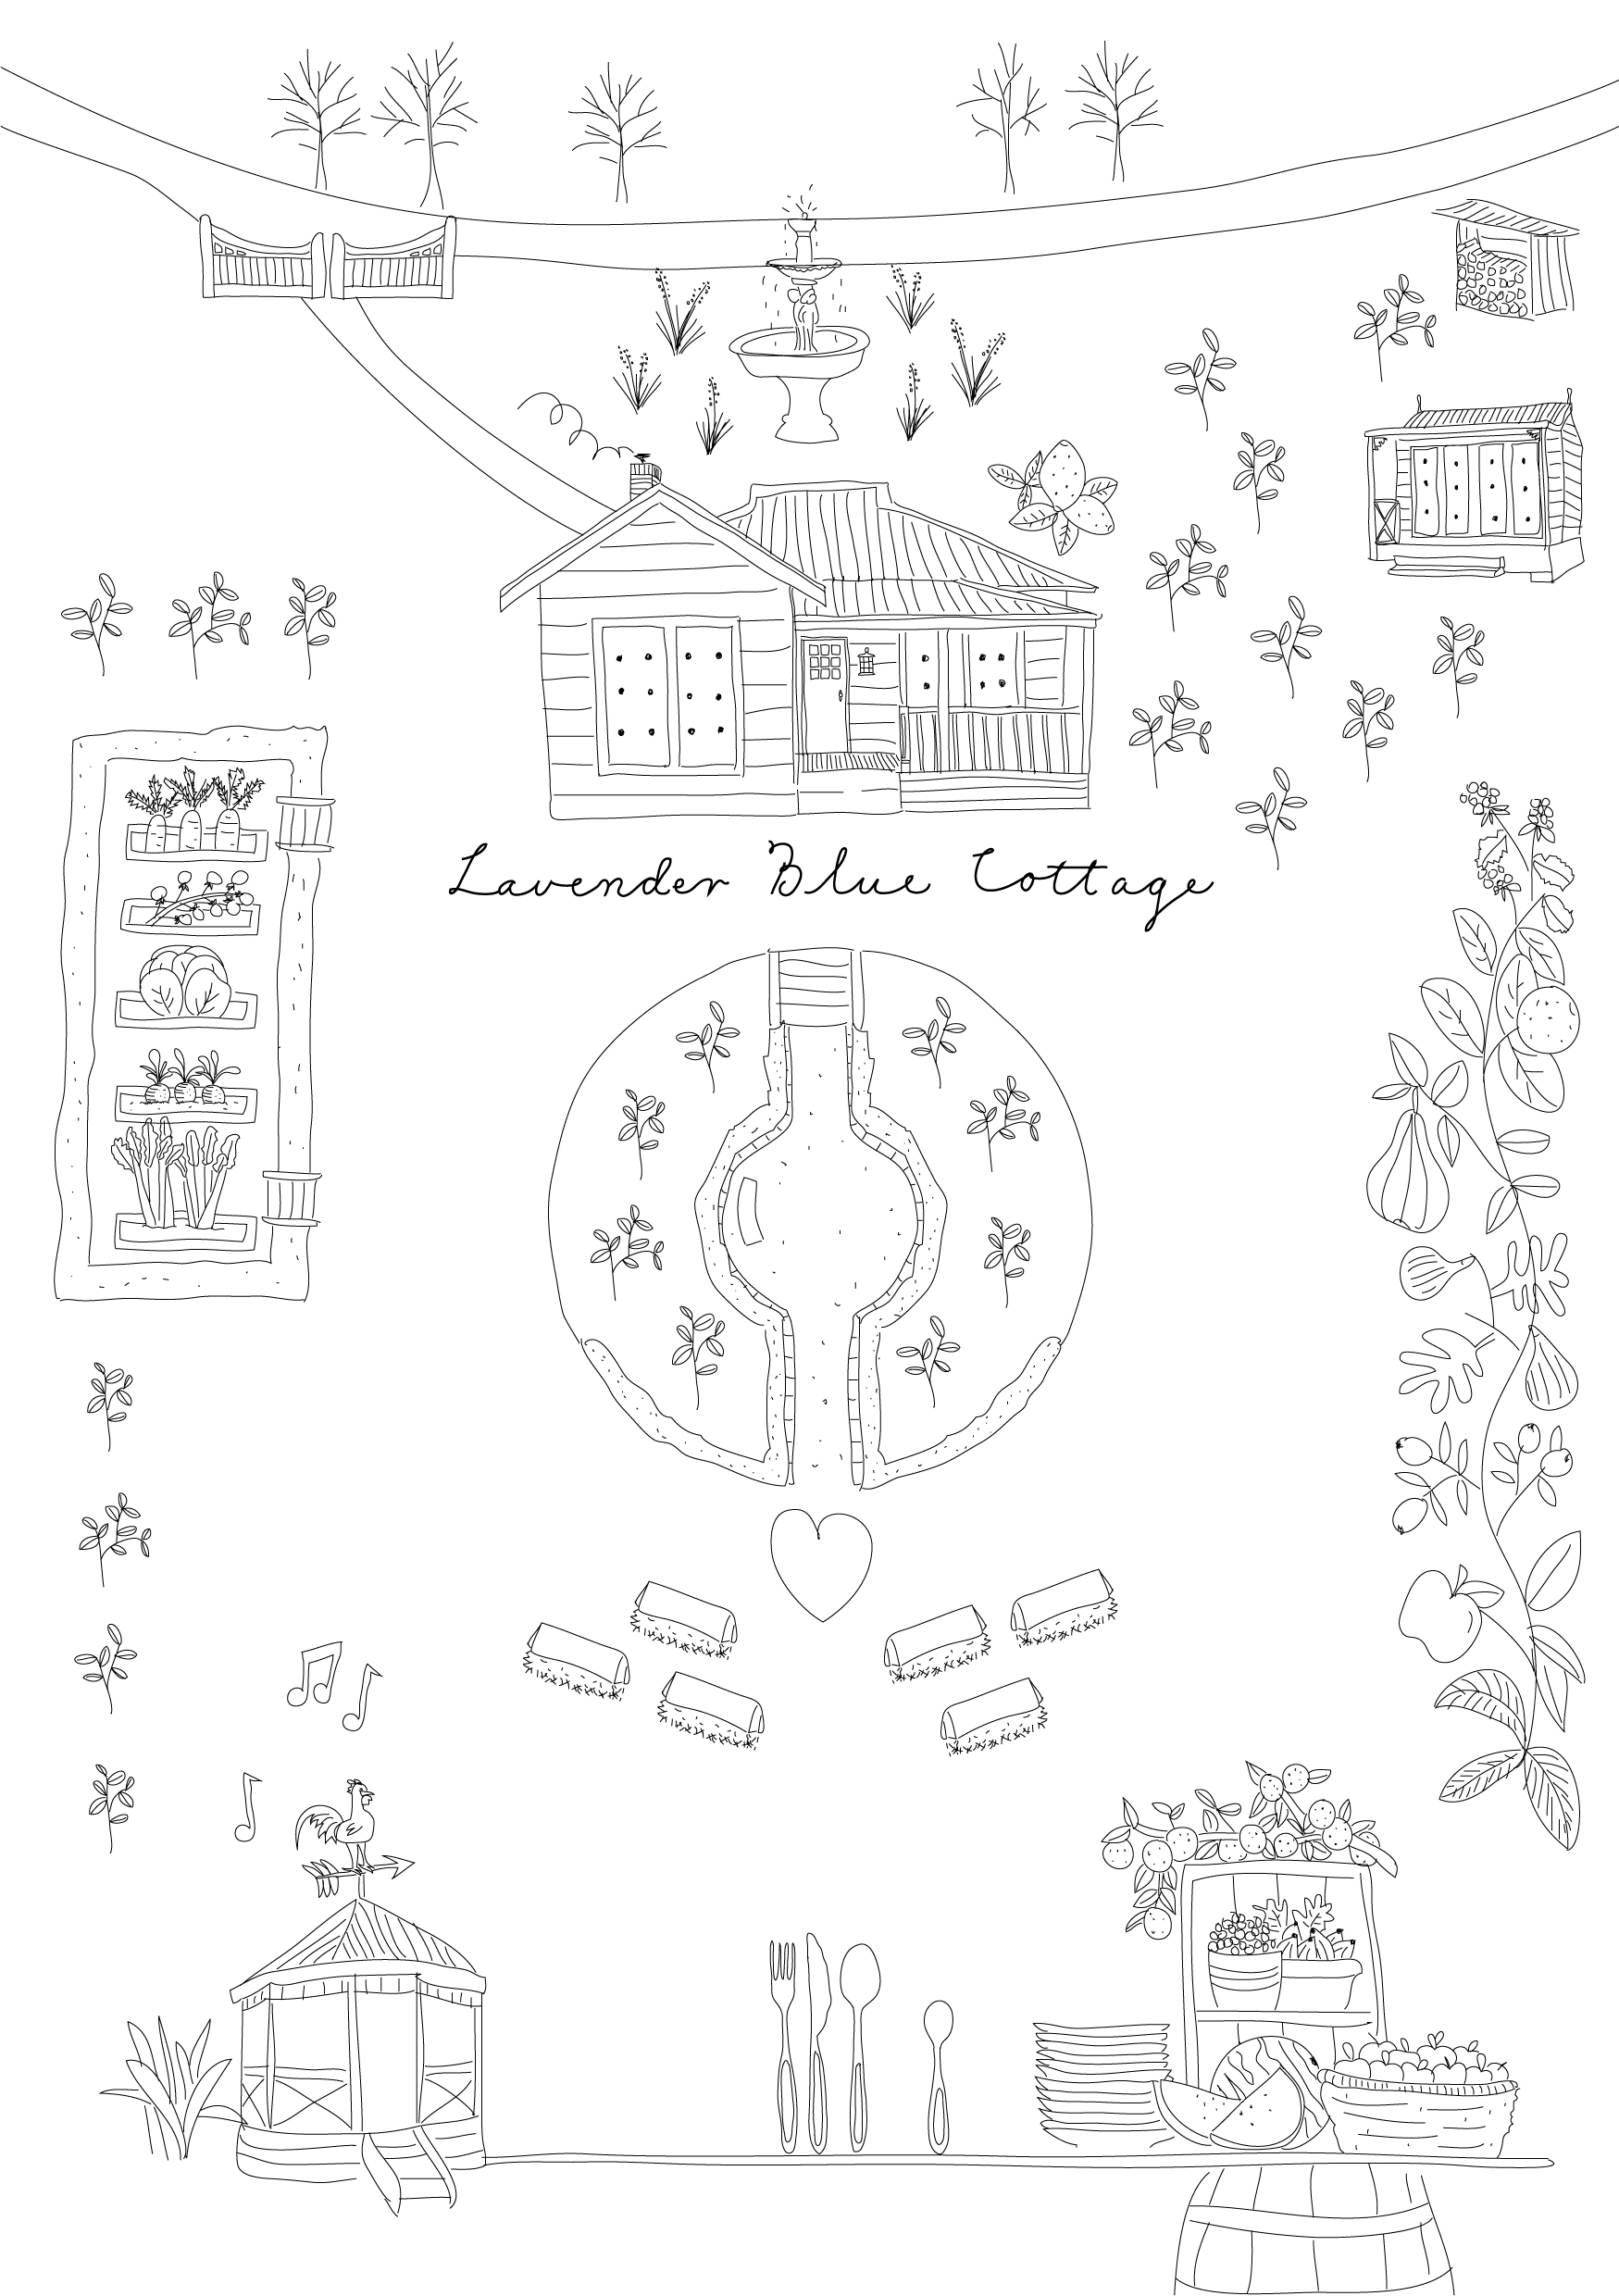 Lavender Blue Cottage